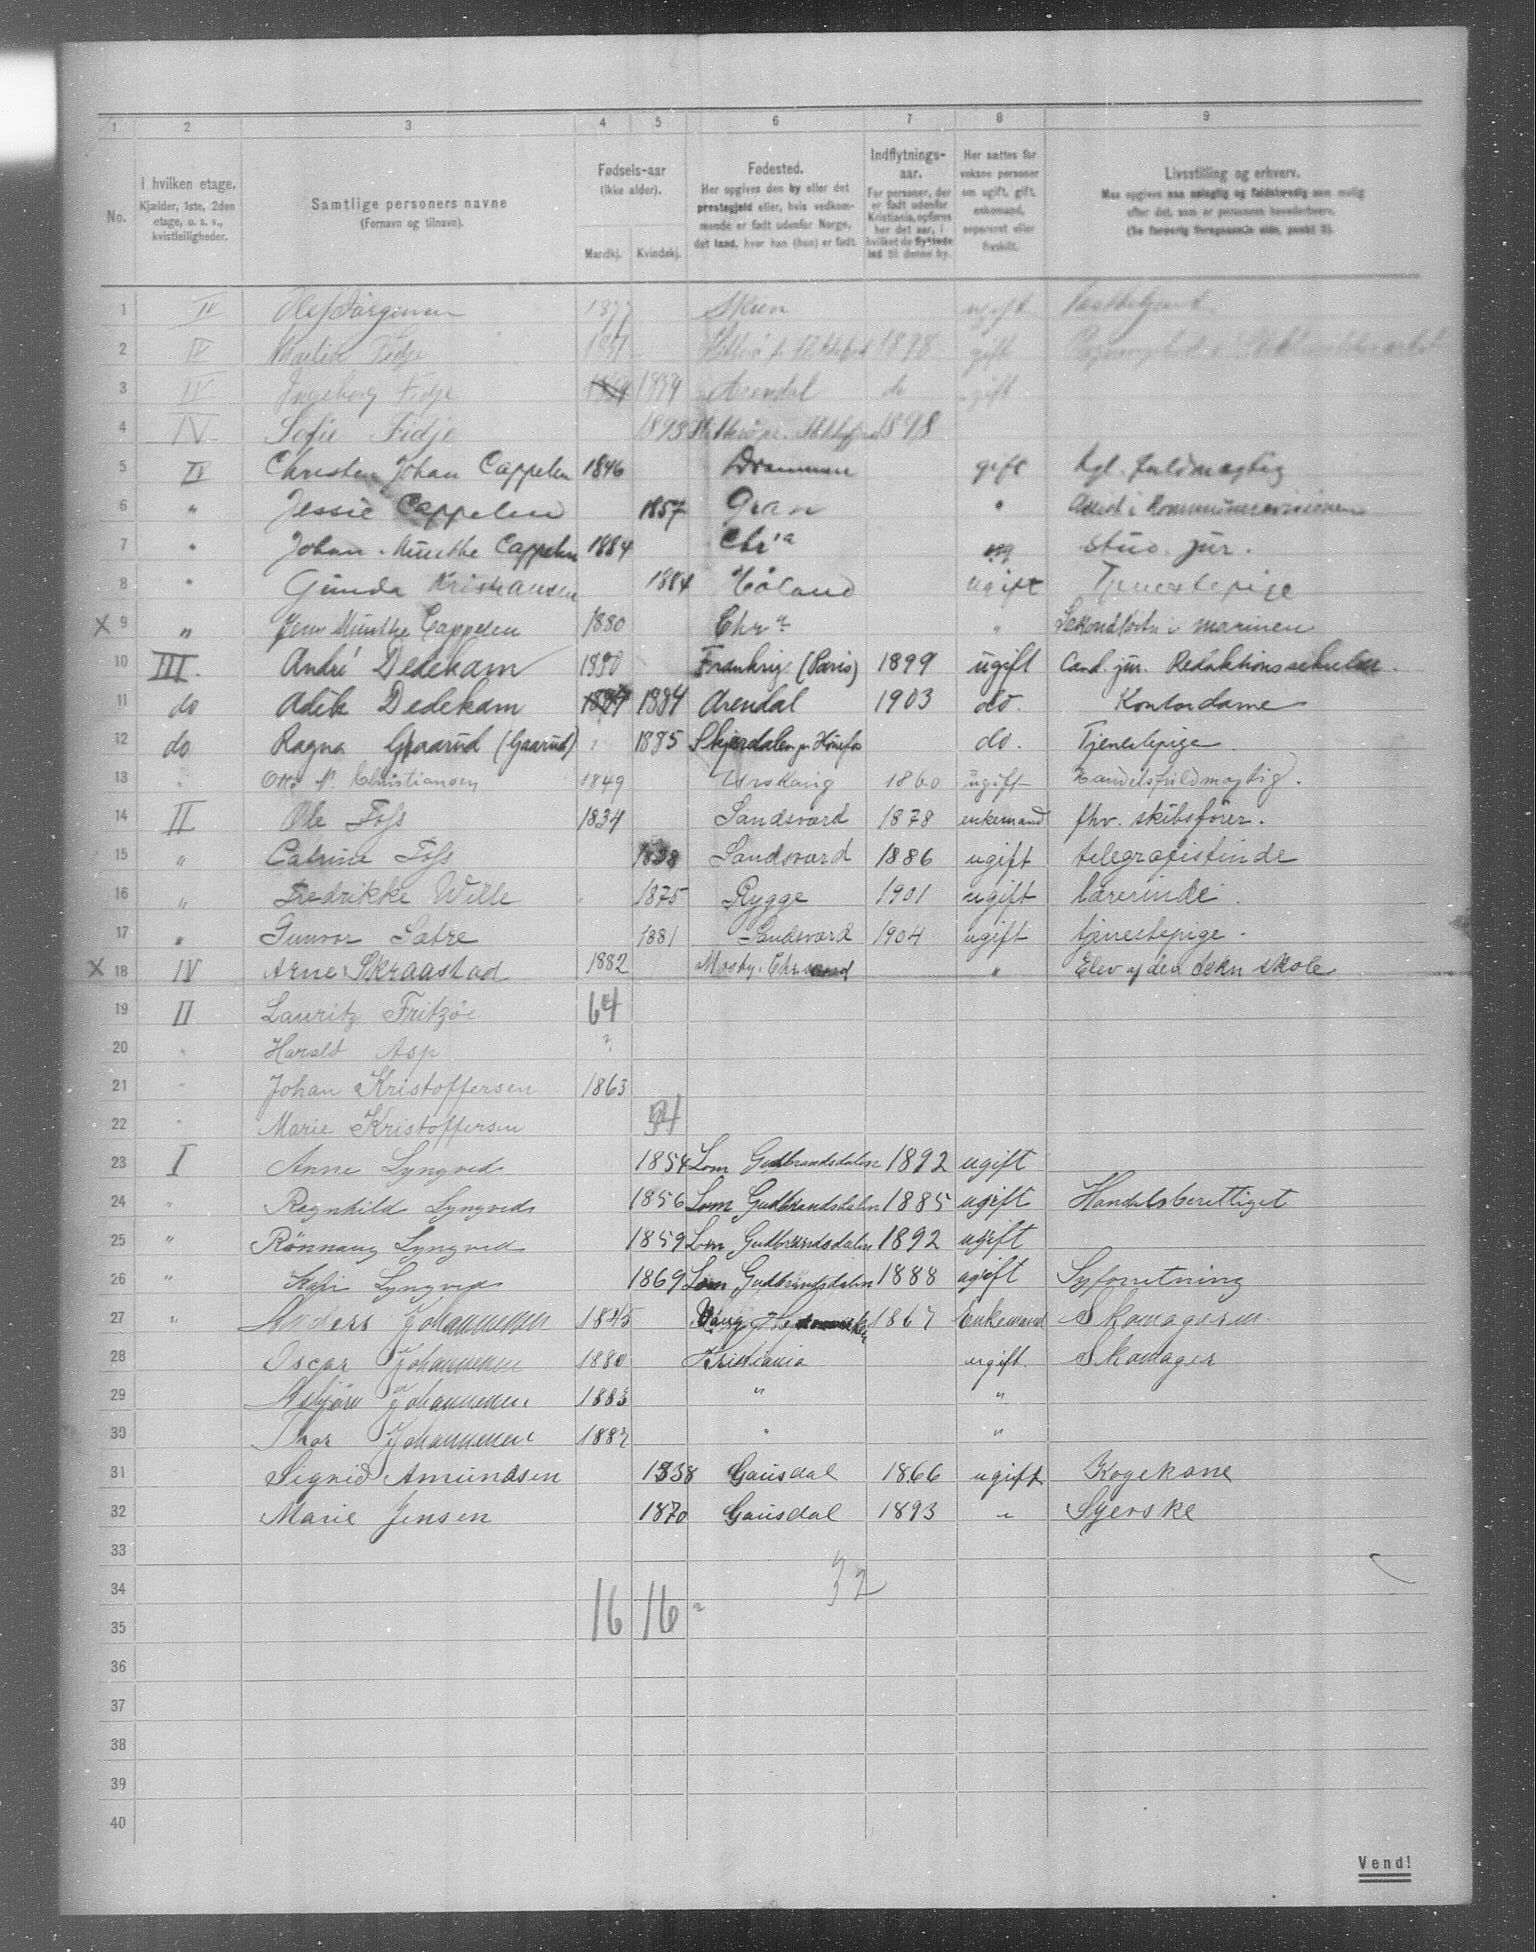 1 2 3 4 5 6 7 8 9
No.
I hvilken etage.
Kjælder, 1ste, 2den
etage, o. s. v.,
kvistleiligheder.
Samtlige personers navne
(Fornavn og tilnavn).
Fødsels-aar
(ikke alder).
Mandkj. Kvindekj.
Fødested.
Her opgives den by eller det
prestegjeld eller, hvis vedkom-
mende er født udenfor Norge,
det land, hvor han (hun) er født.
Indflytnings-
aar.
For personer, der
er født udenfor
Kristiania, opføres
her det aar, i
hvilket de flyttede
ind til denne by.
Her sættes for
voksne personer
om ugift, gift,
enkemand,
separeret eller
fraskilt.
Livsstilling og erhverv.
Maa opgives saa nøiagtig og fuldstændig som mulig
efter det, som er personens hovederhverv.
1 IV Olaf Jørgensen 1877 Skien ugift
2 IV Martin Fidje 1898 gift
3 IV Ingeborg Fidje 1859 Arendal do gift
4 IV Sofie Fidje 1893 1898
5 IV Christen Johan Cappelen 1846 Drammen gift kgl. fuldmægtig
6 " Jessie Cappelen 1857 Gran "
7 " Johan Munthe Cappelen 1884 Chr ia ug stud. jur.
8 " Gunda Kristiansen 1884 Høland ugift Tjenestepige
X 9 " Jens Munthe Cappelen 1880 Chr a " i marinen
10 III. André Dedekam 1890 Frankrig (Paris) 1899 ugift Cand. jur. Redaktionssekretær.
11 do Adele Dedekam 1884 1884 Arendal 1903 do. Kontordame
12 do Ragna Graarud (Gaarud) 1885 Skjærdalen pr Hønefos do. Tjenestepige
13 " Christiansen 1849 Urskoug 1860 ugift Handelsfuldmægtig.
14 II Ole Foss 1834 Sandsværd 1878 enkemand fhv. skibsfører.
15 " Catrine Foss 1828 Sandsværd 1886 ugift telegrafistinde
16 " Fredrikke Wille 1875 Rygge 1901 ugift lærerinde
17 " Gunvor Sætre 1881 Sandsværd 1904 ugift tjenestepige.
X 18 IV Arne Skraastad 1882 Mosby, Chrsand " Elev af den tekn skole
19 II Lauritz Fritzøe 64
20 " Harald Asp ?
21 " Johan Kristoffersen 1863
22 " Marie Kristoffersen
23 I Anne Lyngved 1854 Lom Gudbrandsdalen 1892 ugift
24 " Ragnhild Lyngved 1856 Lom Gudbrandsdalen 1885 ugift Handelsberettiget
25 " Rønnaug Lyngved 1859 Lom Gudbrandsdalen 1892 ugift
26 " Kari Lyngved 1869 Lom Gudbrandsdalen 1888 ugift Syforretning
27 " Anders Johannesen 1845 Vang Hedemarken 1867 Enkemand Skomagerm.
28 Oscar Johannesen 1880 Kristiania ugift Skomager
29 Asbjørn Johannesen 1883 " "
30 Thor Johannesen 1887 " "
31 Sigrid Amundsen 1838 Gausdal 1866 ugift Kogekone
32 Marie Jensen 1870 Gausdal 1893 " Syerske
33
34 32
35 16 16
36
37
38
39
40
Vend!